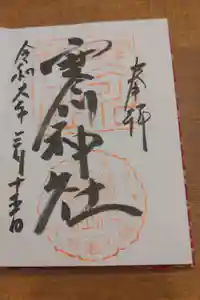 奉拝
寒川神社
令和六年三月十五日